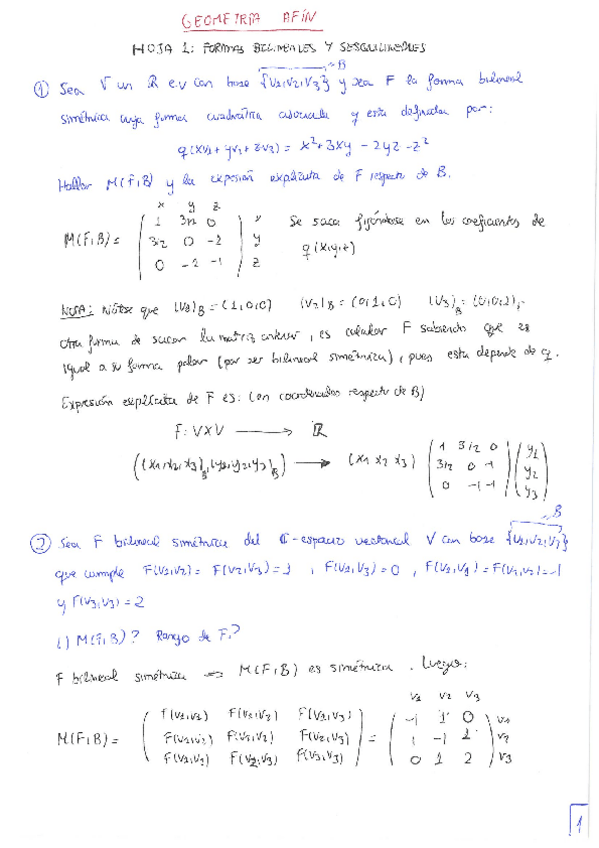 GEOMETRÍA AFÍN
HOJA 1: FORMAS BILINEALES Y SESQUILINEALES
B
① Sea V un R e.v con base {V1,V2,V3} y sea F la forma bilineal
simétrica cuya forma cuadrática asociada q esta definida por:
q(xv1 + yv2 + zv3) = x² + 3xy - 2yz - z²
Hallar M(F,B) y la expresión explícita de F respecto de B.
x y z
M(F,B) = ( 1 3/2 0 ) x Se saca fijándose en los coeficientes de
( 3/2 0 -2 ) y q(x,y,z)
( 0 -2 -1 ) z
NOTA: Nótese que (V1)B = (1,0,0) (V2)B = (0,1,0) (V3)B = (0,0,1),
otra forma de sacar la matriz anterior, es calcular F sabiendo que es
igual a su forma polar (por ser bilineal simétrica), pues esta depende de q.
Expresión explícita de F es: (en coordenadas respecto de B)
F: V×V ⟶ R
((x1,x2,x3)B, (y1,y2,y3)B) ⟶ (x1 x2 x3) ( 1 3/2 0 ) ( y1 )
( 3/2 0 -1 ) ( y2 )
( 0 -1 -1 ) ( y3 )
B
② Sea F bilineal simétrica del C-espacio vectorial V con base {V1,V2,V3}
que cumple F(V1,V2) = F(V2,V3) = 1 , F(V1,V3) = 0 , F(V1,V1) = F(V2,V2) = -1
y F(V3,V3) = 2
i) M(F,B)? Rango de F?
F bilineal simétrica ⟹ M(F,B) es simétrica. Luego:
V1 V2 V3
M(F,B) = ( F(V1,V1) F(V1,V2) F(V1,V3) ) = ( -1 1 0 ) V1
( F(V1,V2) F(V2,V2) F(V2,V3) ) ( 1 -1 1 ) V2
( F(V1,V3) F(V2,V3) F(V3,V3) ) ( 0 1 2 ) V3
1